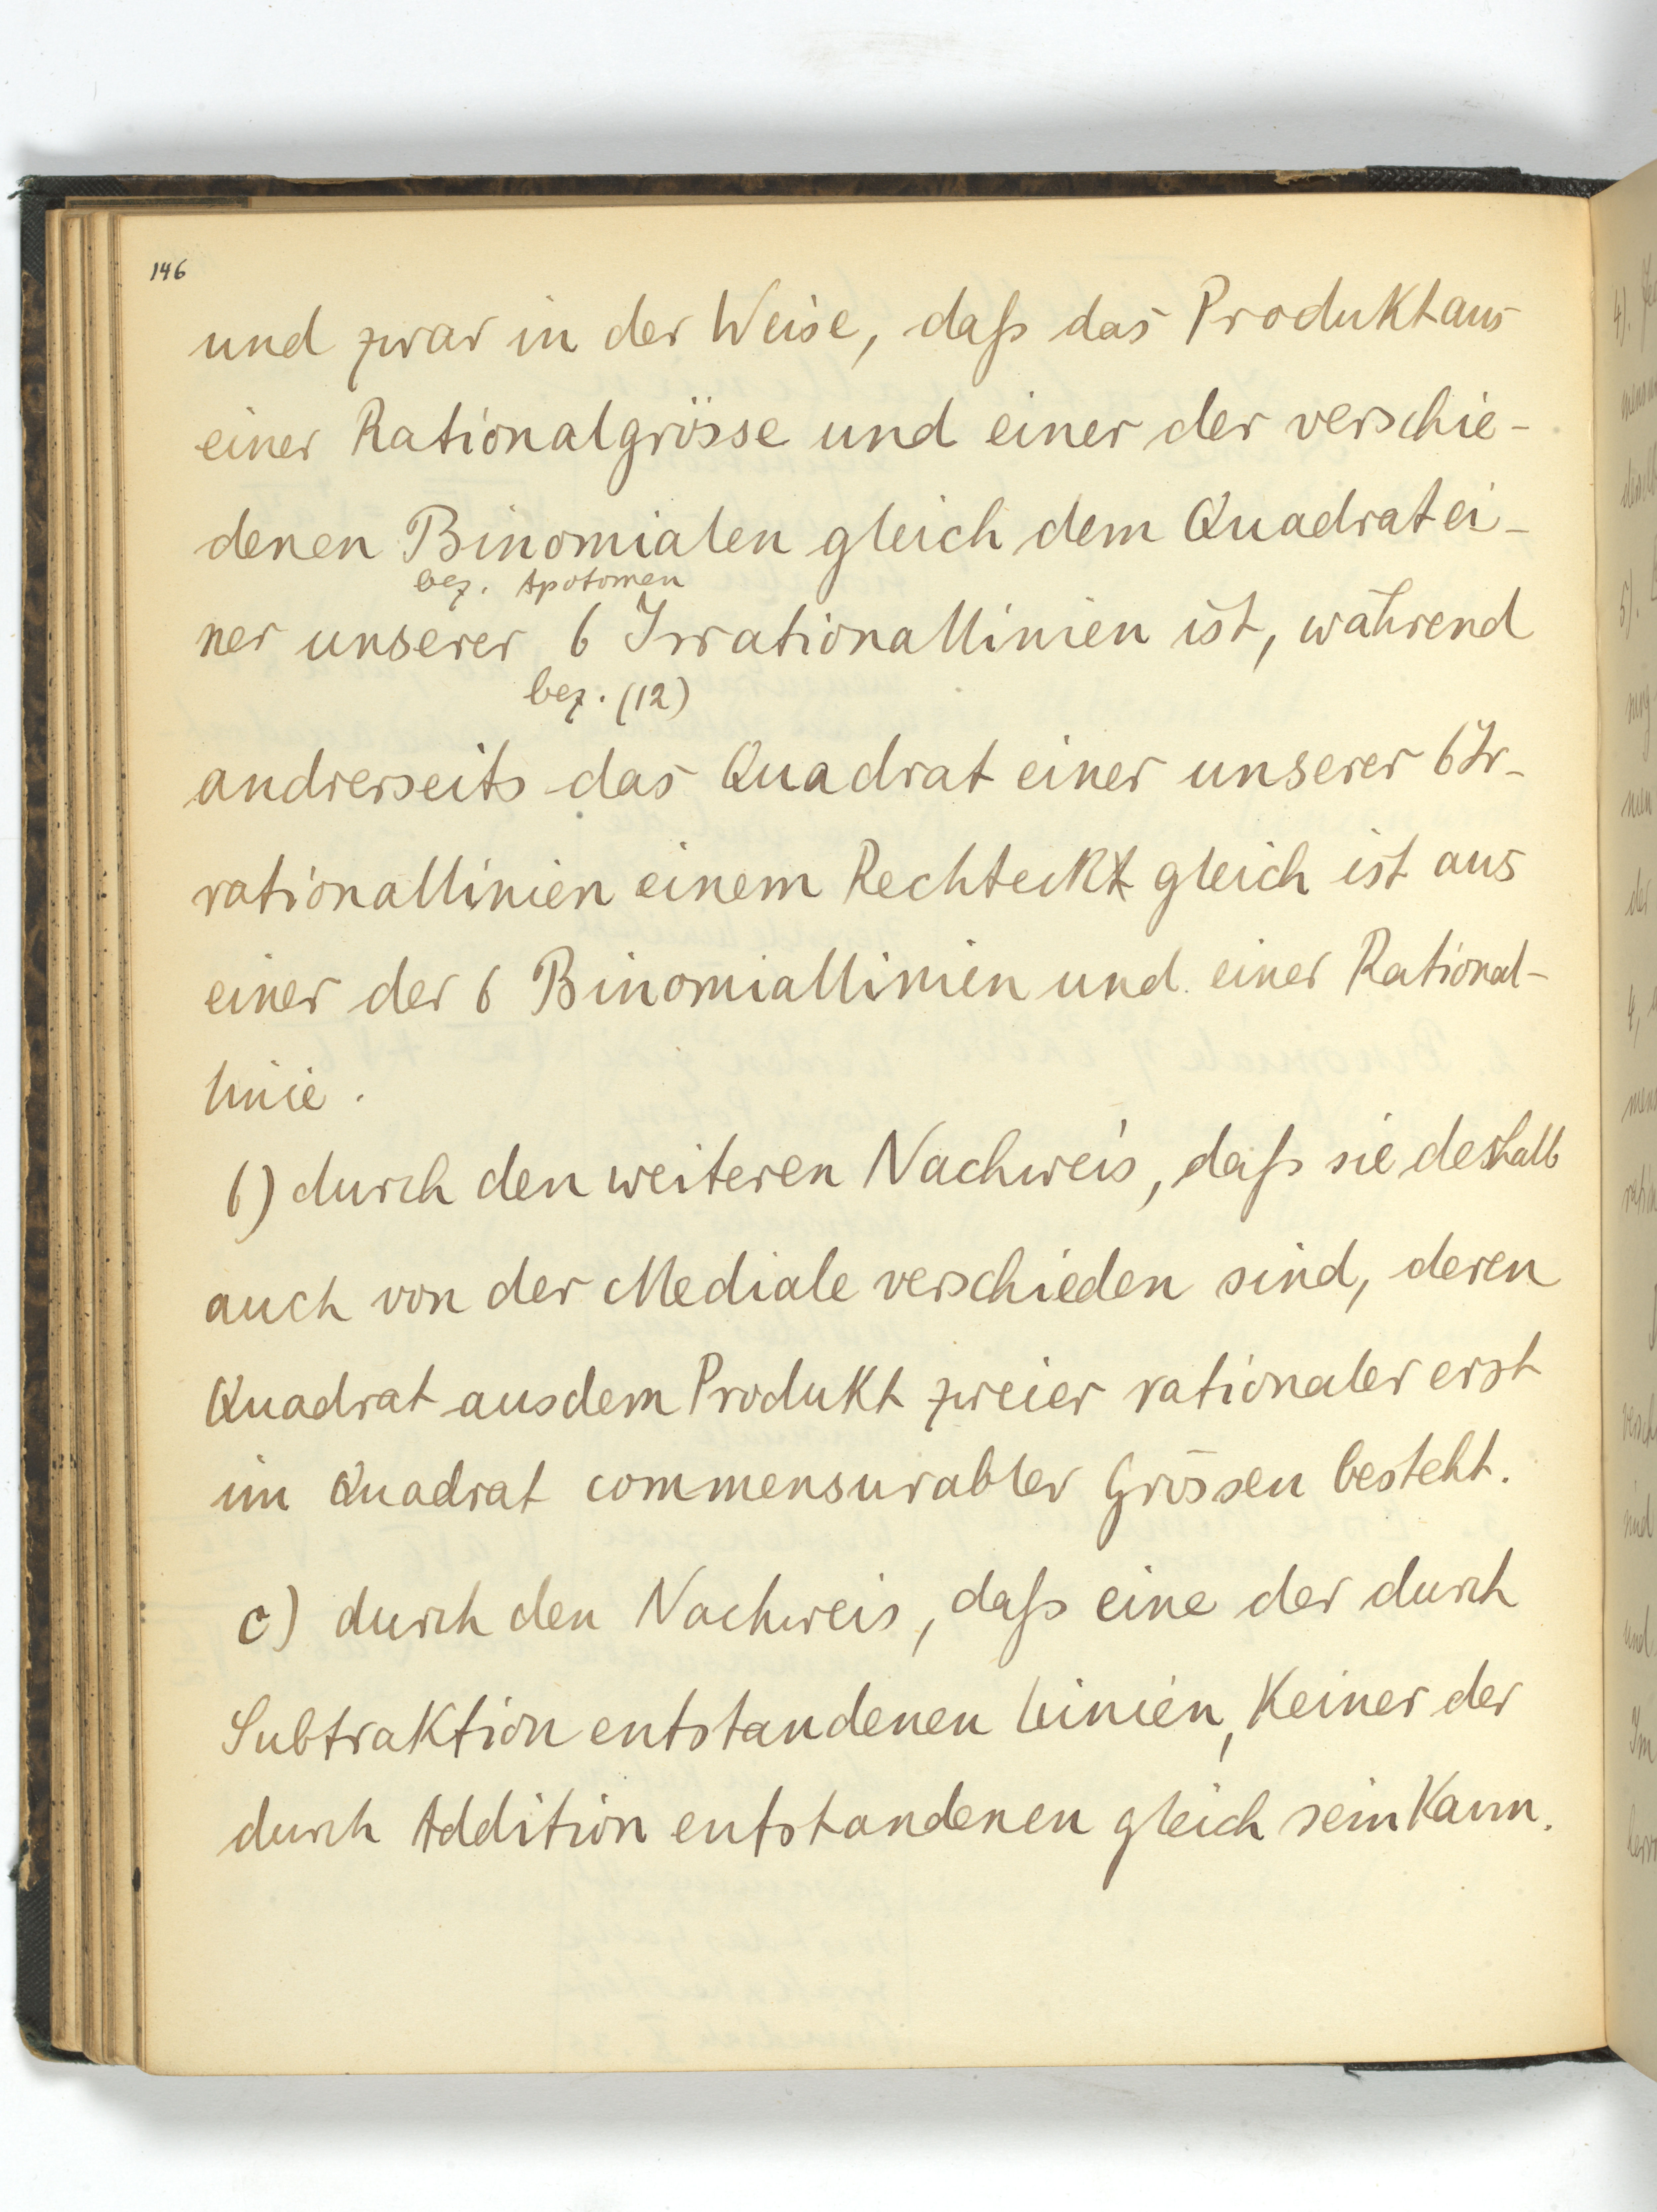 146
und zwar in der Weise, daß das Produkt aus
einer Rationalgrösse und einer der verschie-
denen Binomialen gleich dem Quadrat ei-
bez. Apotomen
ner unserer 6 Irrationallinien ist, während
bez. (12)
andrerseits das Quadrat einer unserer 6 Ir-
rationallinien einem Rechteckt gleich ist aus
einer der 6 Binomiallinien und einer Rational-
linie.
b) durch den weiteren Nachweis, daß sie deshalb
auch von der Mediale verschieden sind, deren
Quadrat aus dem Produkt zweier rationaler erst
im Quadrat commensurabler Grössen besteht.
c) durch den Nachweis, daß eine der durch
Subtraktion entstandenen Linien, Keiner der
durch Addition entstandenen gleich sein Kann.